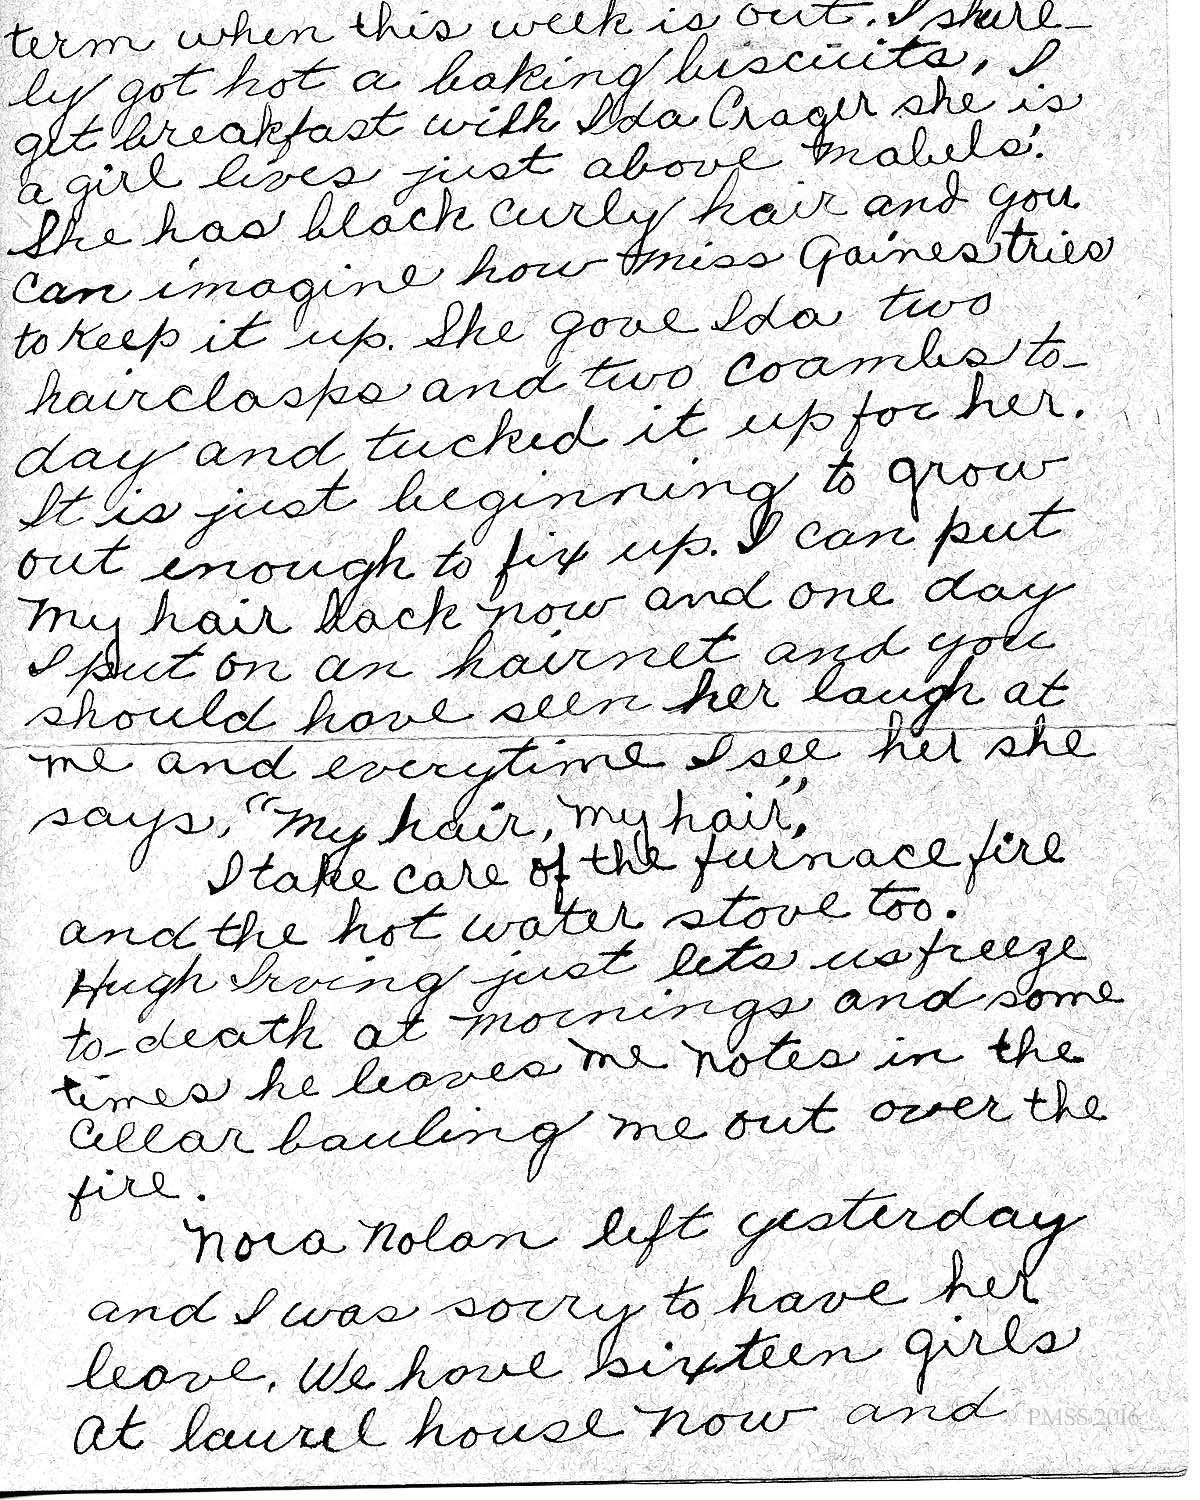 term when this week is out. I shure-
ly got hot a baking biscuits, I
get breakfast with Ida Crager she is
a girl lives just above Mabels'.
She has black curly hair and you
can imagine how Miss Gaines tries
to keep it up. She gave Ida two
hairclasps and two coambs to-
day and tucked it up for her.
It is just beginning to grow
out enough to fix up. I can put
My hair back now and one day
I put on an hairnet and you
should have seen her laugh at
me and everytime I see her she
says, "My hair, My hair",
I take care of the furnace fire
and the hot water stove too.
Hugh Irving just lets us freeze
to-death at mornings and some
times he leaves me notes in the
cellar bauling me out over the
fire.
Nora Nolan left yesterday
and I was sorry to have her
leave. We have sixteen girls
at laurel house now and
PMSS 2016